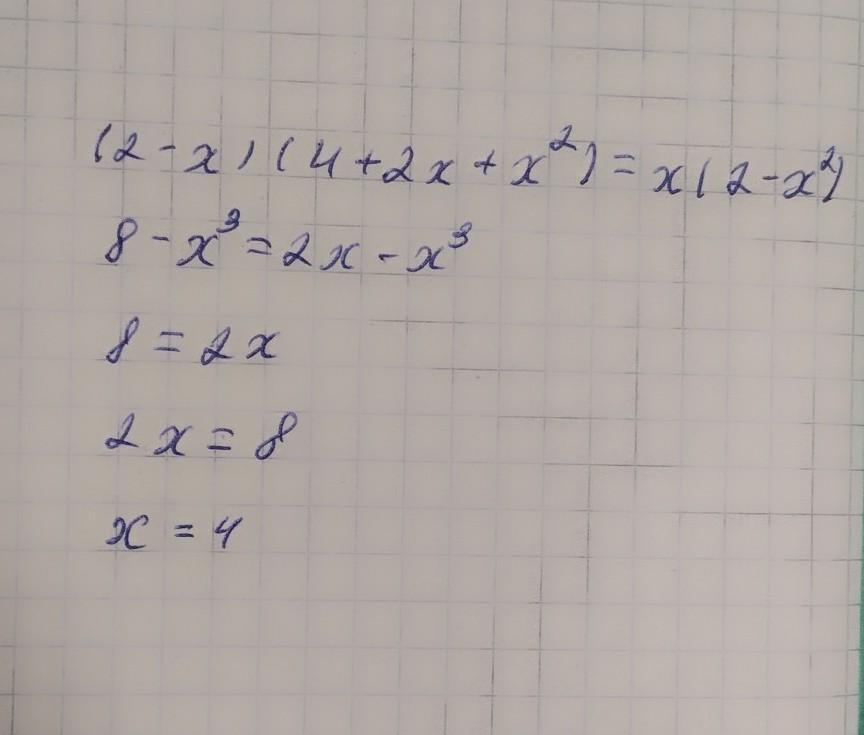 (2-x)(4+2x+x²)=x(2-x²)
8-x³=2x-x³
8=2x
2x=8
x=4